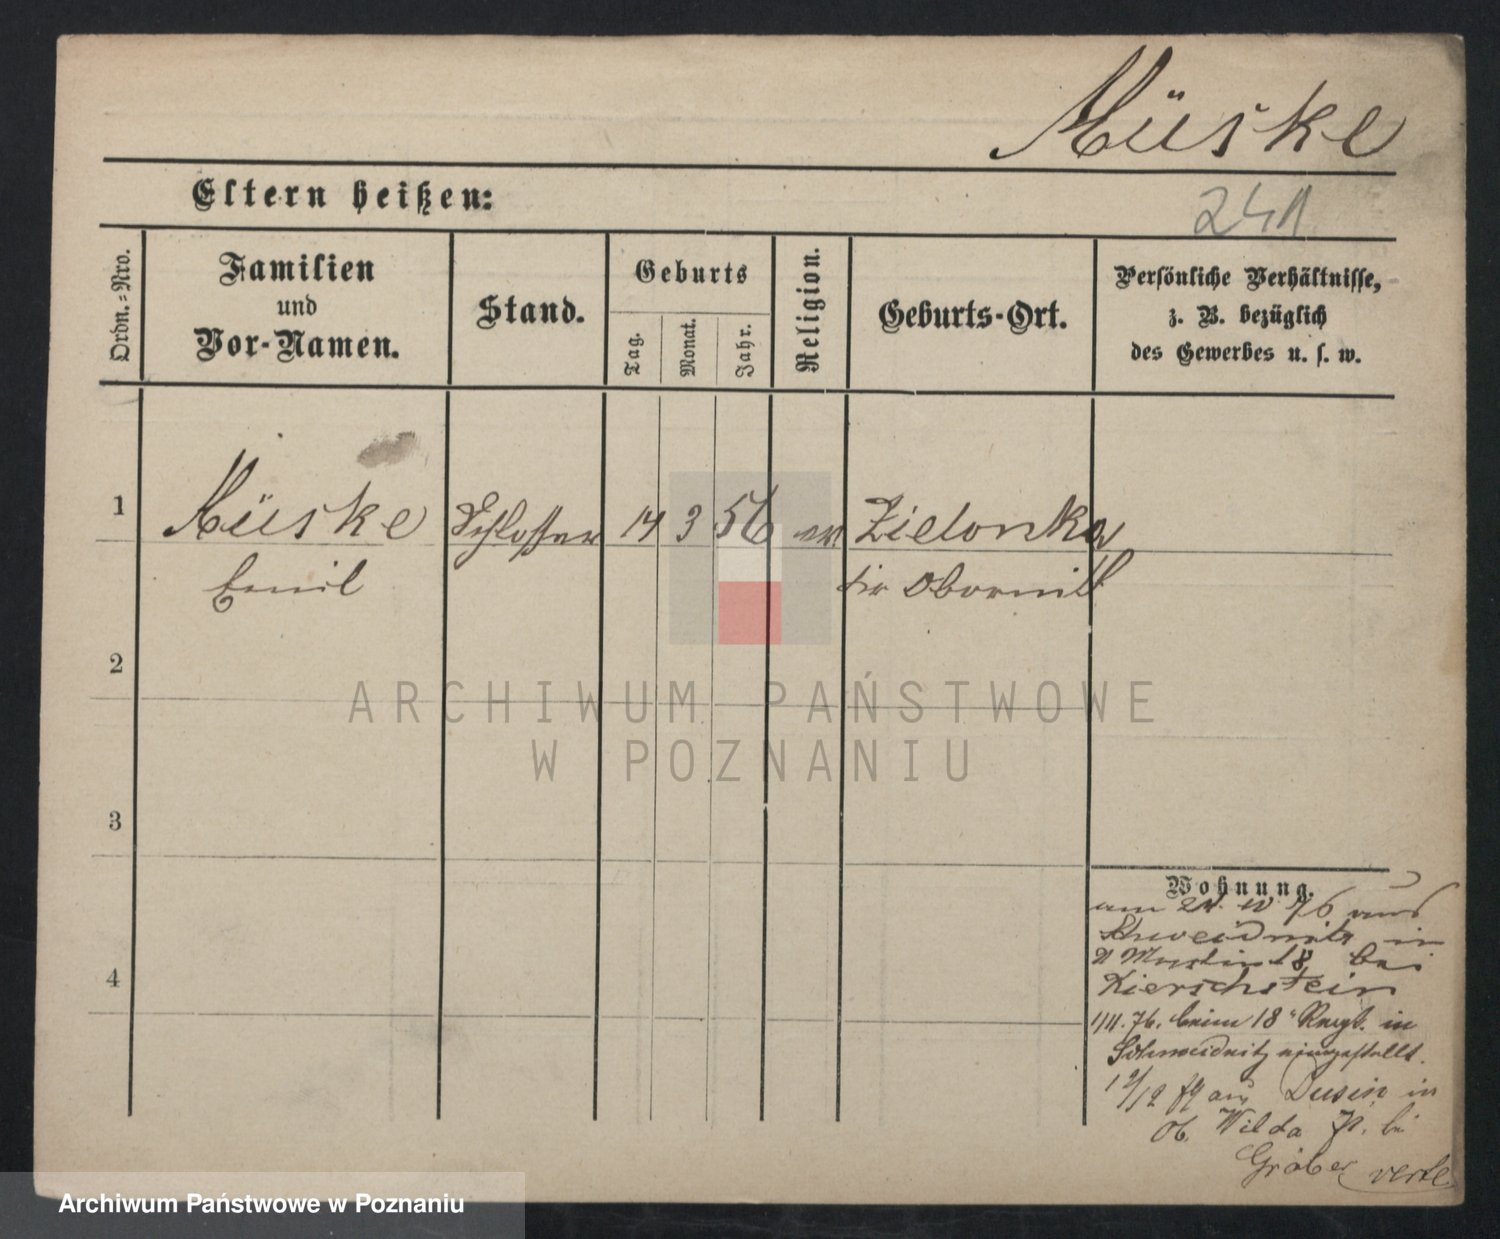 Müske
Eltern heißen:
241
Ordn.=Nro.
Familien
und
Vor-Namen.
Stand.
Geburts
Tag.
Monat.
Jahr.
Religion.
Geburts-Ort.
Persönliche Verhältnisse,
z. B. bezüglich
des Gewerbes u. s. w.
1
Müske
Schlosser
14
3
56
ev
Zielonka
Emil
Kr Obornik
2
ARCHIWUM PAŃSTWOWE
W POZNANIU
3
Wohnung.
am 76 aus
Schweidnitz in
18 bei
Kierschstein
4
76. beim 18 Regt. in
Schweidnitz eingestellt.
12 79 aus Dusin in
Ob. Wilda bei
Gräber verte
Archiwum Państwowe w Poznaniu